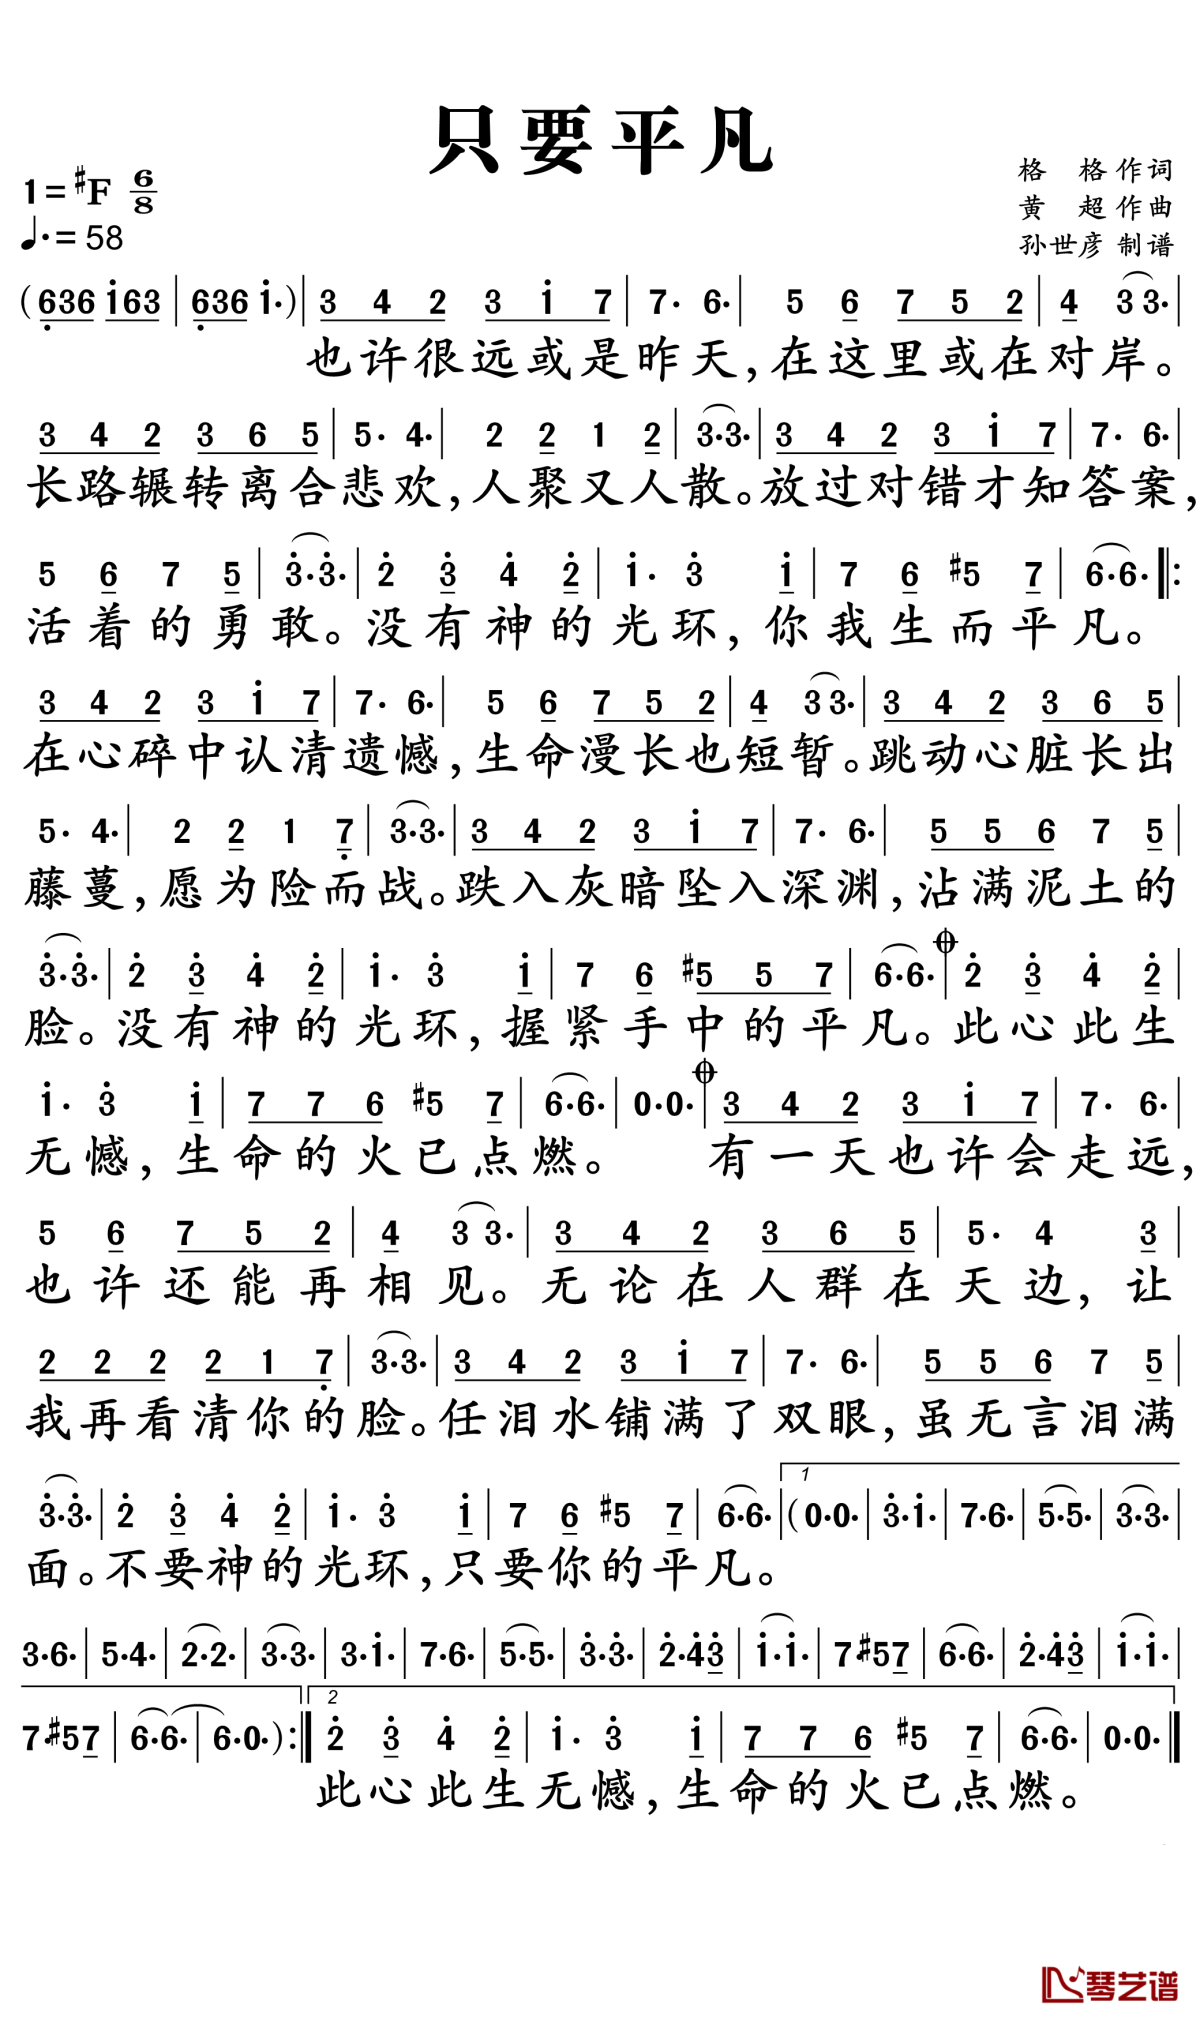 只要平凡
1=♯F 6/8
♩.=58
格 格 作词
黄 超 作曲
孙世彦 制谱
(636 i63 | 636 i·) | 3 4 2 3 i 7 | 7· 6· | 5 6 7 5 2 | 4 3 3· |
也许很远或是昨天,在这里或在对岸。
3 4 2 3 6 5 | 5· 4· | 2 2 1 2 | 3·3· | 3 4 2 3 i 7 | 7· 6· |
长路辗转离合悲欢,人聚又人散。放过对错才知答案,
5 6 7 5 | 3·3· | 2 3 4 2 | i· 3 i | 7 6 ♯5 7 | 6·6· ‖:
活着的勇敢。没有神的光环,你我生而平凡。
3 4 2 3 i 7 | 7· 6· | 5 6 7 5 2 | 4 3 3· | 3 4 2 3 6 5 |
在心碎中认清遗憾,生命漫长也短暂。跳动心脏长出
5· 4· | 2 2 1 7 | 3·3· | 3 4 2 3 i 7 | 7· 6· | 5 5 6 7 5 |
藤蔓,愿为险而战。跌入灰暗坠入深渊,沾满泥土的
3·3· | 2 3 4 2 | i· 3 i | 7 6 ♯5 5 7 | 6·6· | 2 3 4 2 |
脸。没有神的光环,握紧手中的平凡。此心此生
i· 3 i | 7 7 6 ♯5 7 | 6·6· | 0·0· | 3 4 2 3 i 7 | 7· 6· |
无憾,生命的火已点燃。 有一天也许会走远,
5 6 7 5 2 | 4 3 3· | 3 4 2 3 6 5 | 5· 4 3 |
也许还能再相见。无论在人群在天边,让
2 2 2 2 1 7 | 3·3· | 3 4 2 3 i 7 | 7· 6· | 5 5 6 7 5 |
我再看清你的脸。任泪水铺满了双眼,虽无言泪满
1
3·3· | 2 3 4 2 | i· 3 i | 7 6 ♯5 7 | 6·6· | (0·0· | 3·i· | 7·6· | 5·5· | 3·3· |
面。不要神的光环,只要你的平凡。
3·6· | 5·4· | 2·2· | 3·3· | 3·i· | 7·6· | 5·5· | 3·3· | 2·43 | i·i· | 7·♯57 | 6·6· | 2·43 | i·i· |
2
7·♯57 | 6·6· | 6·0·) :‖ 2 3 4 2 | i· 3 i | 7 7 6 ♯5 7 | 6·6· | 0·0· ‖
此心此生无憾,生命的火已点燃。
琴艺谱